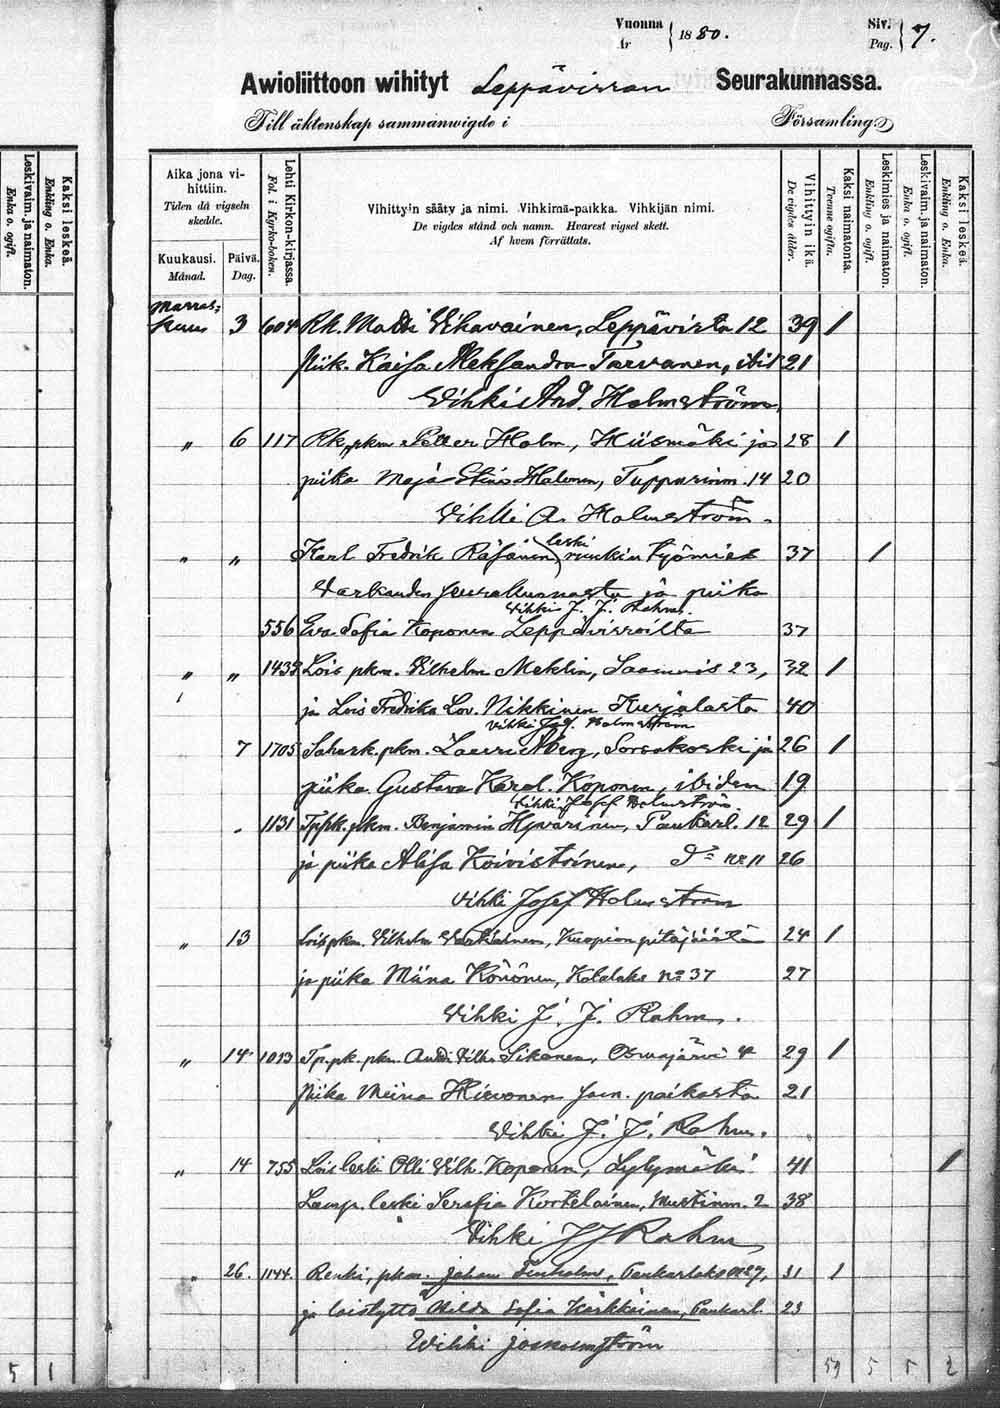 Vuonna 1880. Siv. 7.
År Pag.
Awioliittoon wihityt Leppävirran Seurakunnassa.
Till äktenskap sammanwigde i Församling
Kaksi leskeä.
Enkling o. Enka.
Leskivaim. ja naimaton.
Enka o. ogift.
Aika jona vihittiin.
Tiden då vigseln skedde.
Kuukausi.
Månad.
Päivä.
Dag.
Lehti Kirkon-kirjassa.
Fol. i Kyrko-boken.
Vihittyin sääty ja nimi. Vihkimä-paikka. Vihkijän nimi.
De vigdes stånd och namn. Hvarest vigsel skett.
Af hvem förrättats.
Vihittyin ikä.
De vigdes ålder.
Kaksi naimatonta.
Tvenne ogifta.
Leskimies ja naimaton.
Enkling o. ogift.
Leskivaim. ja naimaton.
Enka o. ogift.
Kaksi leskeä.
Enkling o. Enka.
Marras-
kuu 3 604 Rk. Matti Vihavainen, Leppävirta 12 39 1
Piik. Kaisa Aleksandra Tarvanen, ibid 21
Vihki And. Holmström.
„ 6 117 Rk. pkm Petter Holm, Hiismäki ja 28 1
piika Maja Stina Halonen, 14 20
Vihki A. Holmström.
„ „ Karl Fredrik Räsänen, leski ruukin työmies 37 1
Varkauden seurakunnasta ja piika
Vihki J. J. Rahm.
556 Eva Sofia Koponen Leppävirroilta 37
„ „ 1433 Lois pkm. Vilhelm Meklin, Saamais 23, 32 1
ja Lois Fredrika Lov. Nikkinen Kurjalasta 40
Vihki Jos. Holmström
7 1705 Sahark. pkm. Lauri Åberg, Sorsakoski ja 26 1
piika Gustava Karol. Koponen, ibidem 19
Vihki Josef Holmström
1131 pkm. Benjamin Hyvärinen, Paukarl. 12 29 1
ja piika Alisa Koivistoinen, No 11 26
Vihki Josef Holmström
„ 13 Lois pkm. Vilhelm Vartiainen, Kuopion pitäjäästä 24 1
ja piika Miina Könönen, Kotalaks No 37 27
Vihki J. J. Rahm.
„ 14 1013 Tp. pk. pkm. Antti Vilh. Sikanen, Osmajärvi 4 29 1
Piika Miina Hievonen sam. paikasta 21
Vihki J. J. Rahm.
„ 14 755 Lois leski Olli Vilh. Koponen, Lylymäki 41 1
Lamp. leski Serafia Kortelainen, Mustinm. 2 38
Vihki J J Rahm
„ 26. 1144. Renki, pkm. Johan Tenholm, Paukarlaks No 27, 31 1
ja loistyttö Hilda Sofia Kärkkäinen, Paukarl. 23
Wihki Jos Holmström
5 1 59 5 5 2